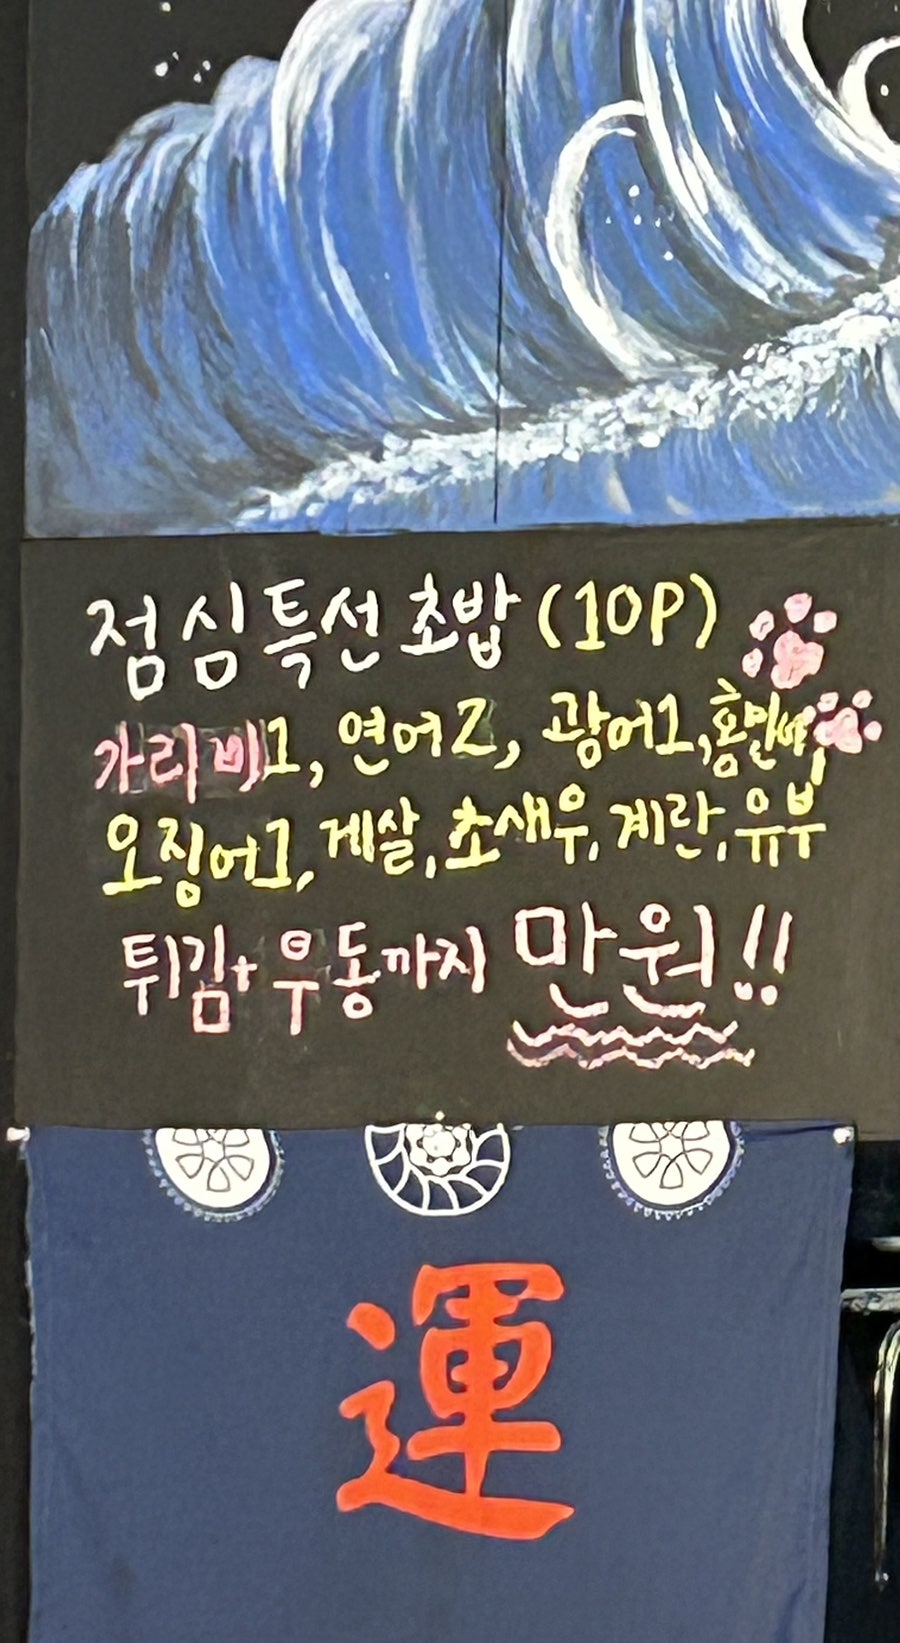 점심특선 초밥 (10P)
가리비1, 연어2, 광어1, 홍민어1,
오징어1, 게살, 초새우, 계란, 유부
튀김+우동까지 만원!!
運